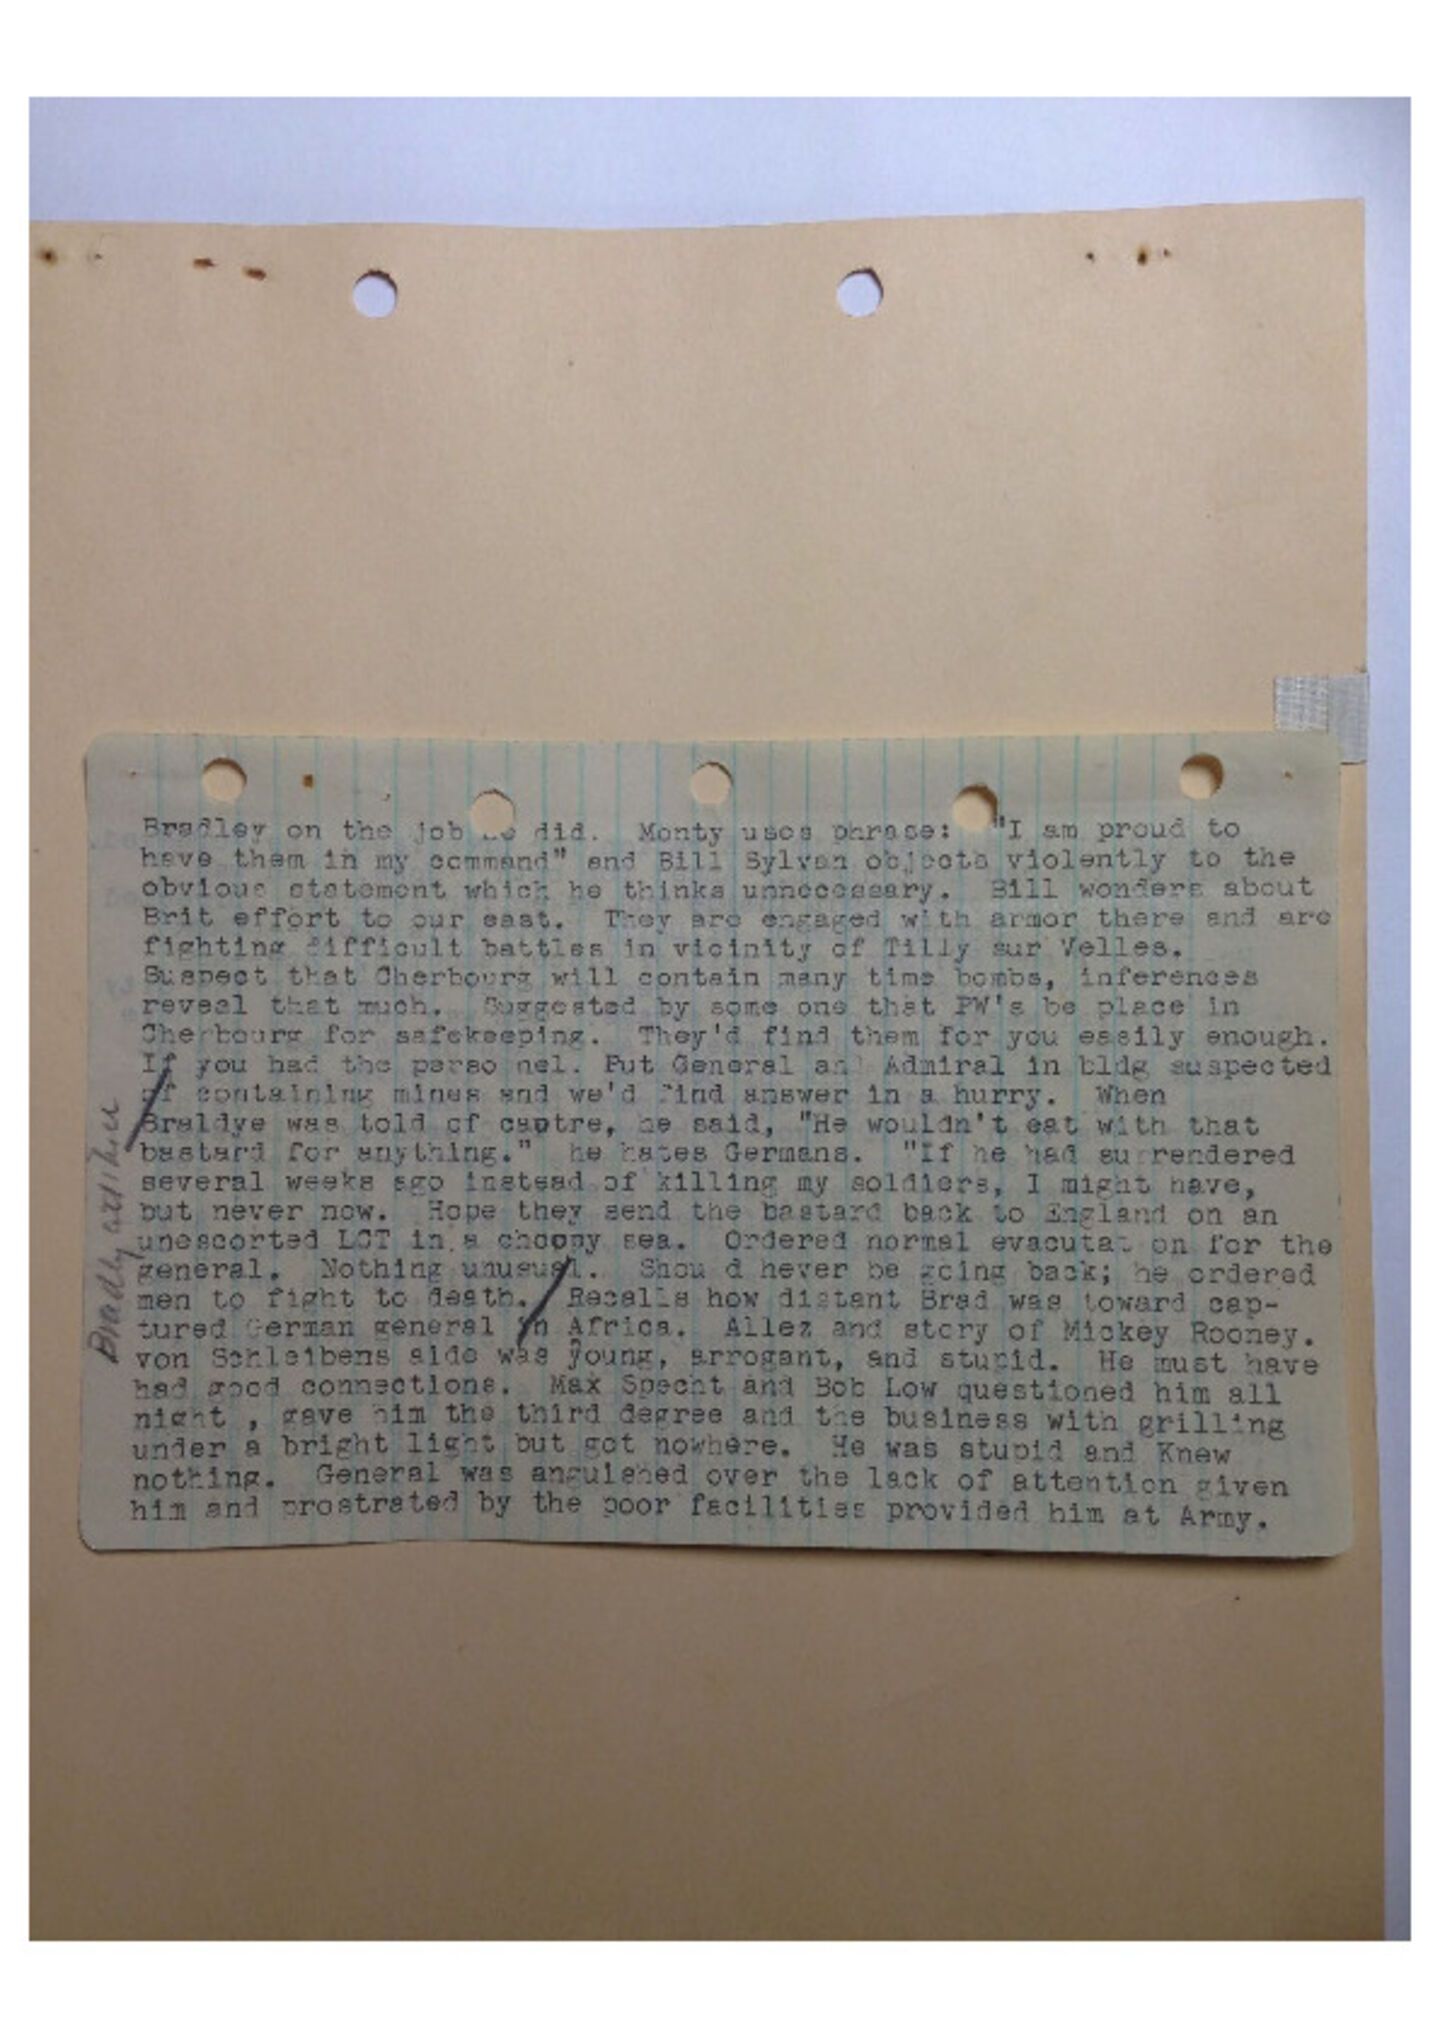 Bradley on the job he did.  Monty uses phrase:  "I am proud to
have them in my command" and Bill Sylvan objects violently to the
obvious statement which he thinks unnecessary.  Bill wonders about
Brit effort to our east.  They are engaged with armor there and are
fighting difficult battles in vicinity of Tilly sur Velles.
Suspect that Cherbourg will contain many time bombs, inferences
reveal that much.  Suggested by some one that PW's be place in
Cherbourg for safekeeping.  They'd find them for you easily enough.
If you had the perso nel. Put General and Admiral in bldg suspected
of containing mines and we'd find answer in a hurry.  When
Braldye was told of captre, he said, "He wouldn't eat with that
bastard for anything."  he hates Germans.  "If he had su rendered
several weeks ago instead of killing my soldiers, I might have,
but never now.  Hope they send the bastard back to England on an
unescorted LCT in a choppy sea.  Ordered normal evacutat on for the
general.  Nothing unusual.  Shou d never be going back; he ordered
men to fight to death.  Recalls how distant Brad was toward cap-
tured German general in Africa.  Allez and story of Mickey Rooney.
von Schleibens aide was young, arrogant, and stupid.  He must have
had good connections.  Max Specht and Bob Low questioned him all
night , gave him the third degree and the business with grilling
under a bright light but got nowhere.  He was stupid and Knew
nothing.  General was anguished over the lack of attention given
him and prostrated by the poor facilities provided him at Army.
Bradly